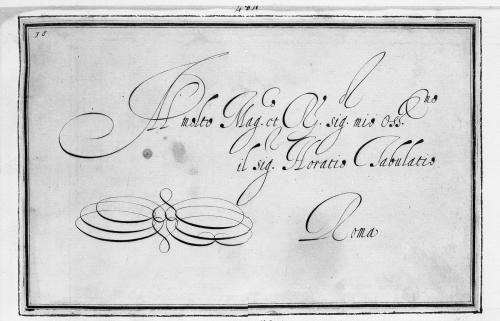 38
Al molto Mag.co et R.do sig. mio oss.mo
il sig. Horatio Tabulatio
Roma